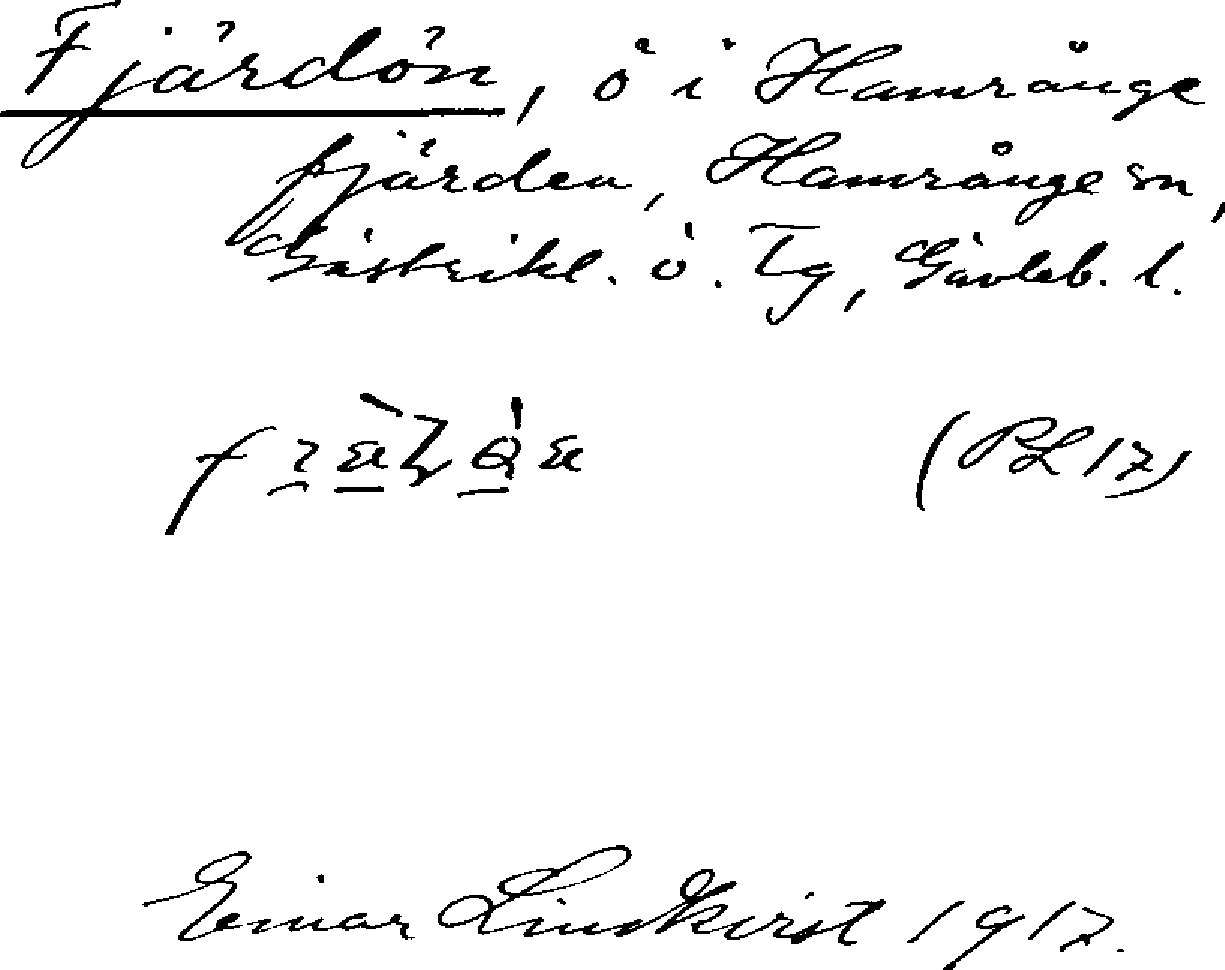 Fjärdön, ö i Hamrånge
fjärden, Hamrånge sn,
Gästrikl. ö. Tg, Gävleb. l.
(PL 17)
Einar Lindkvist 1917.